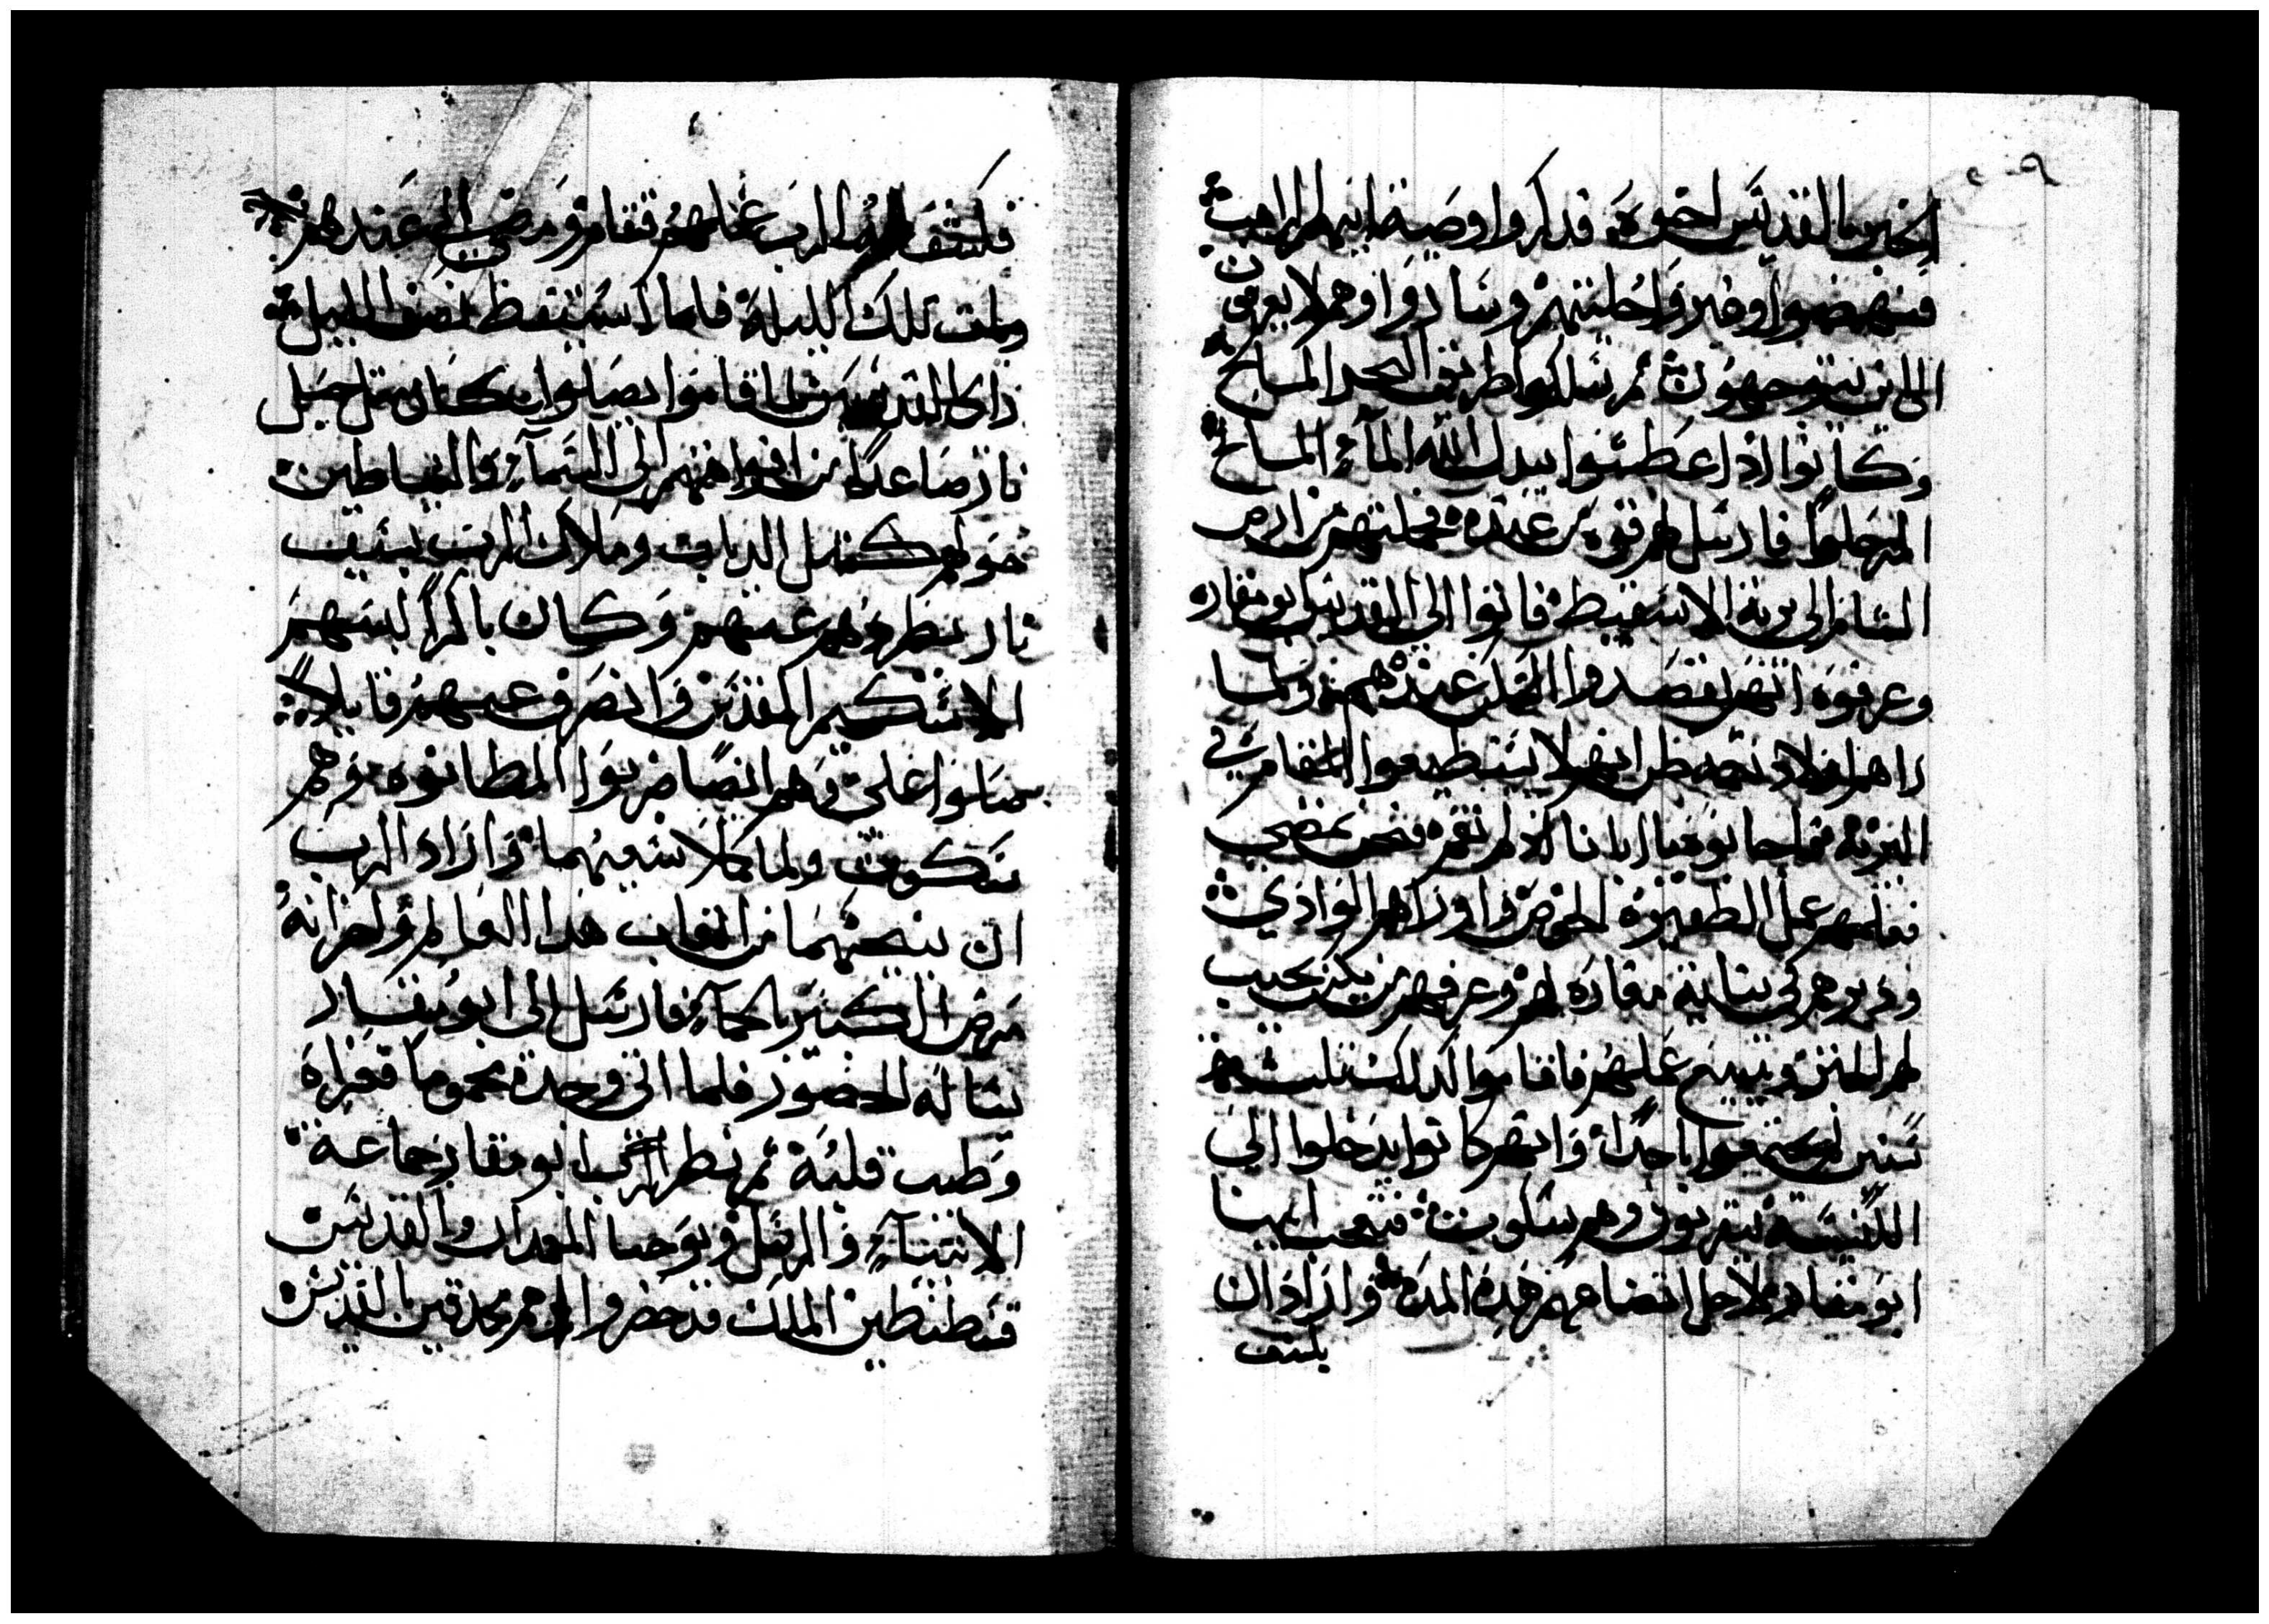 اخين بالقديس اخوة قد ذكروا وصية ابيهم الراهب
فنهضوا وغيروا حليتهم وساروا وهم لا يعرفون
الى اين يتوجهون ثم سلكوا طريق البحر المالح
وكانوا اذا عطشوا يبدل الله المآء المالح
الى حلوا فارسل لهم قوة من عنده فحملتهم من ارض
الشام الى برية الاسقيط فاتوا الى القديس ابو مقاره
وعرفوه انهم قصدوا السكن عنده ولما
راهم اولاد نعمه ظن انهم لا يستطيعوا المقام في
البرية فاجابوه يا ابانا ان لم نقم فنحن نمضي
فعلمهم عمل الضفيرة الخوص واوراهم الوادي
ودبرهم في بناية مغارة لهم وعرفهم من يكن يجيب
لهم الخبز ويبيع عملهم فاقاموا كذلك ثلث
سنين لم يجتمعوا باحدا وانهم كانوا يدخلوا الى
الكنيسة يتقربون وهم سكوت فتعجب ابينا
ابو مقار لاجل انقضاهم هذه المدة واراد ان
يكشف
فكشف الرب عملهم فقام ومضى الى عندهم
وبات تلك الليلة فلما استيقظ نصف الليل
راى القديسين لما قاموا يصلوا وكان مثل حبل
نار صاعدا من افواههم الى السمآء والشياطين
حولهم كمثل الدباب وملاك الرب بسيف
نار يطردهم عنهم وكان باكرا لبسهم
الاسكيم المقدس وانصرف عنهم قايلا
صلوا علي وهم ايضا ضربوا المطانوه وهم
سكوت ولما كملا سعيهما واراد الرب
ان ينيحهما من اتعاب هذا العالم واحزانه
مرض الكبير بالحمآء فارسل الى ابو مقار
يساله الحضور فلما اتى وجده محموما فعزاه
وطيب قلبه ثم نظر ابو مقار جماعة
الانبيآء والرسل ويوحنا المعمدان والقديس
قسطنطين الملك قد حضروا وهم محدقين بالقديس